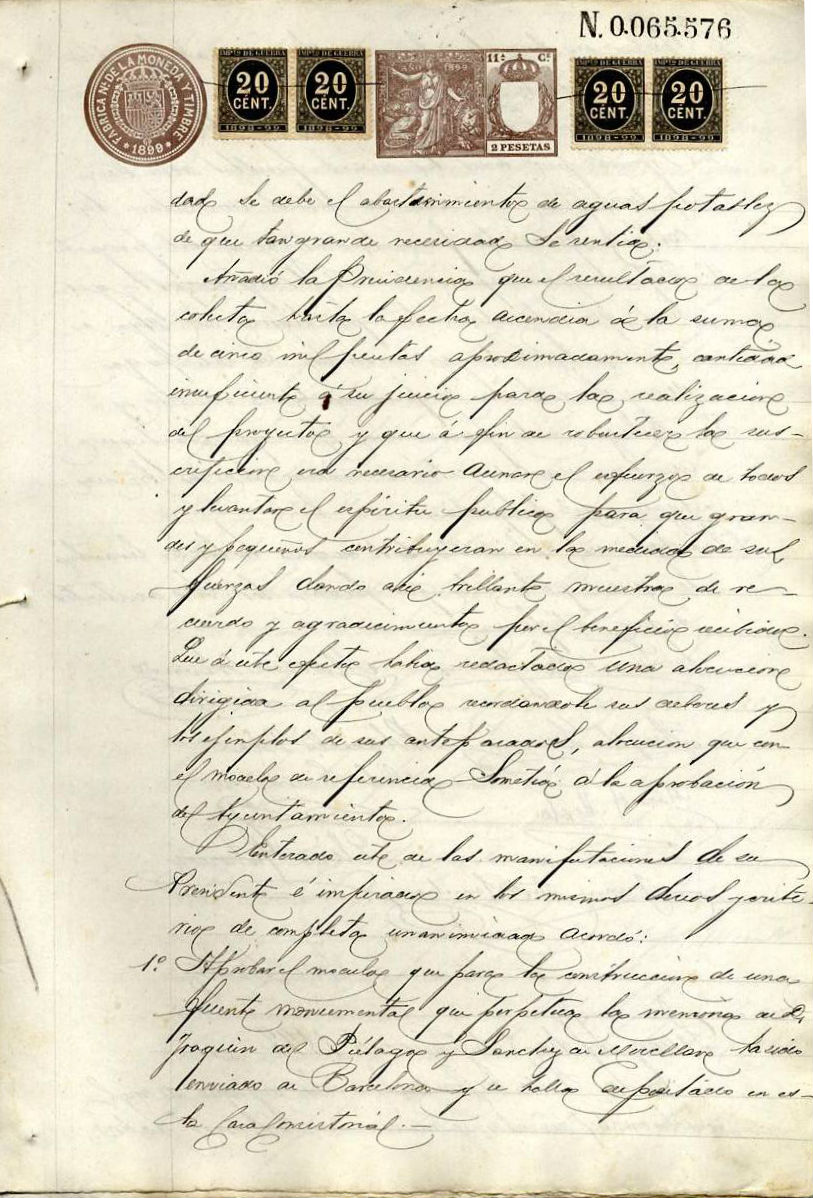 N. 0.065.576
FABRICA Nl. DE LA MONEDA Y TIMBRE
* 1899 *
IMPTO DE GUERRA
20
CENT.
1898-99
IMPTO DE GUERRA
20
CENT.
1898-99
1899
11ª Cª
2 PESETAS
IMPTO DE GUERRA
20
CENT.
1898-99
IMPTO DE GUERRA
20
CENT.
1898-99
dad se debe el abastecimiento de aguas potables
de que tan grande necesidad se sentia.
Añadió la Presidencia que el resultado de la
colecta hasta la fecha ascendia á la suma
de cinco mil pesetas aproximadamente, cantidad
insuficiente á su juicio para la realizacion
del proyecto y que á fin de robustecer la sus-
cripcion era necesario aunar el esfuerzo de todos
y levantar el espiritu publico para que gran-
des y pequeños contribuyeran en la medida de sus
fuerzas dando asi brillante muestra de re-
cuerdo y agradecimiento por el beneficio recibido.
Que á este efecto habia redactado una alocucion
dirigida al pueblo recordandole sus deberes y
los ejemplos de sus antepasados, alocucion que con
el modelo de referencia sometió á la aprobación
del Ayuntamiento.
Enterado este de las manifestaciones de su
Presidente é inspirado en los mismos deseos y crite-
rio de completa unanimidad acordó:
1º Aprobar el modelo que para la construccion de una
fuente monumental que perpetue la memoria de D.
Joaquin del Piélago y Sanchez de Movellan ha sido
enviado de Barcelona y se halla depositado en es-
ta Casa Consistorial.—